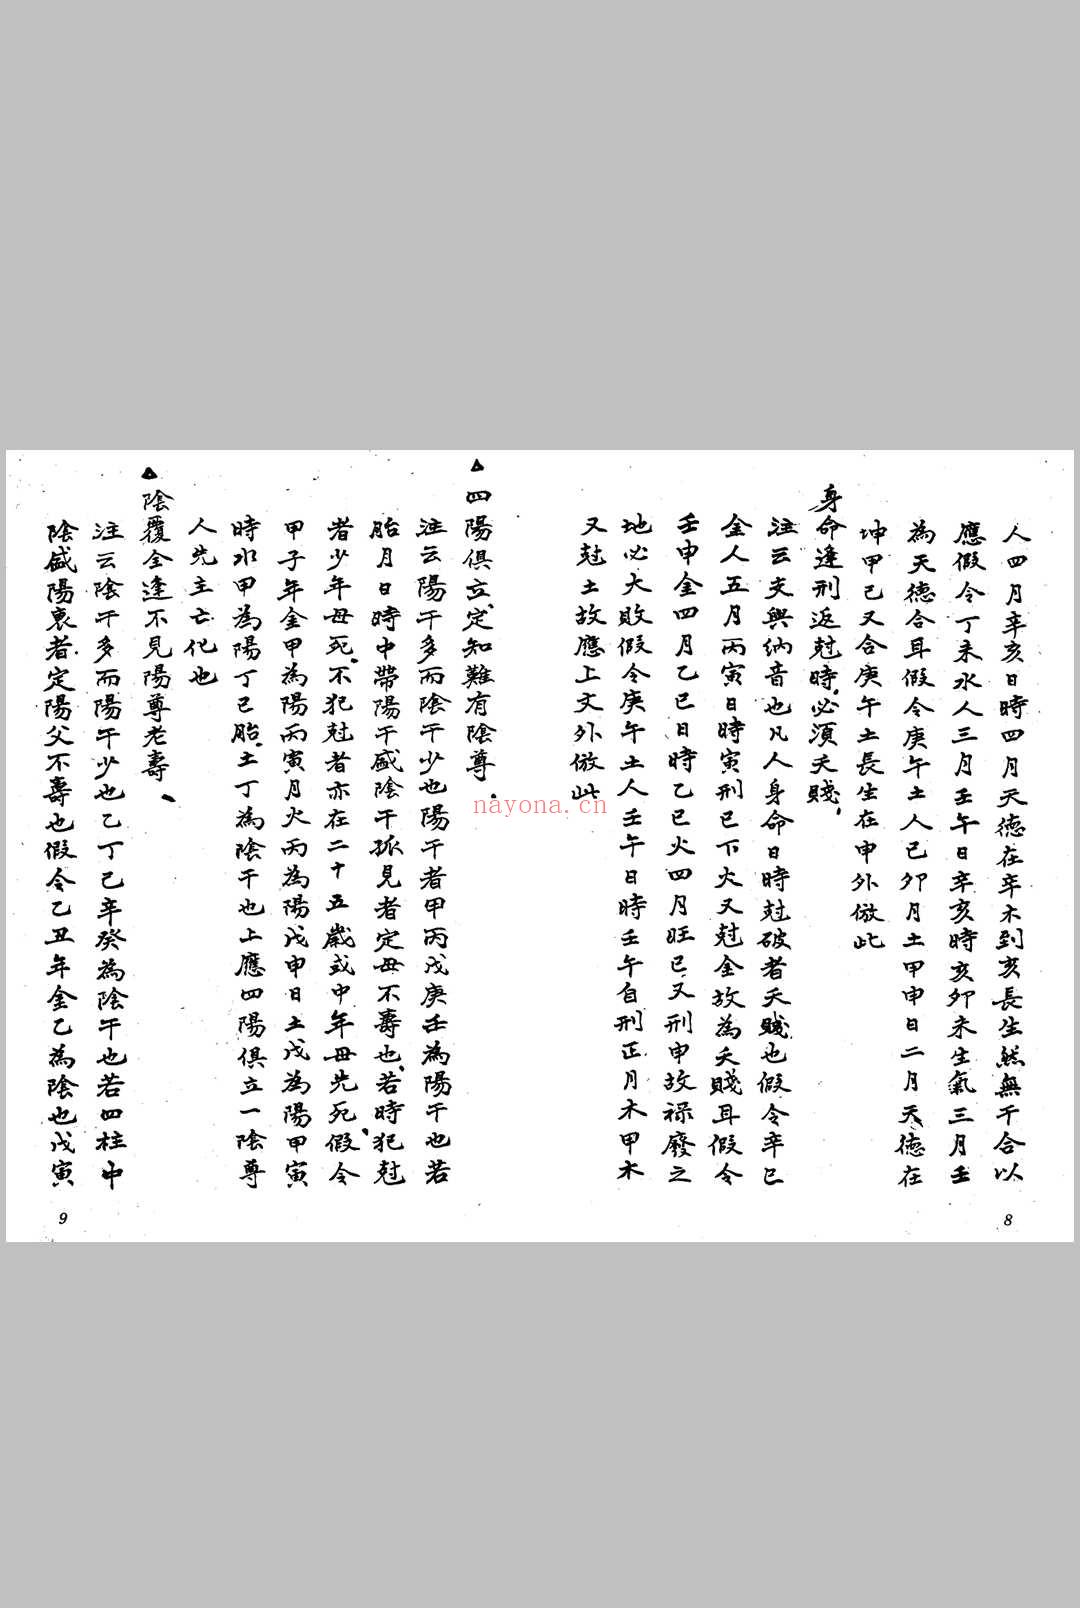 人四月辛亥日時四月天德在辛木到亥長生然無干合以
應假令丁未水人三月壬午日辛亥時亥卯未生氣三月壬
為天德合耳假令庚午土人己卯月土甲申日二月天德在
坤甲己又合庚午土長生在申外倣此
身命逢刑返尅時必須夭賤
注云支與納音也凡人身命日時尅破者夭賤也假令辛巳
金人五月丙寅日時寅刑巳下火又尅金故為夭賤耳假令
壬申金四月乙巳日時乙巳火四月旺巳又刑申故祿廢之
地必大敗假令庚午土人壬午日時壬午自刑正月木甲木
又尅土故應上文外倣此
nayona.cn
8
四陽俱立定知難有陰尊
注云陽干多而陰干少也陽干者甲丙戊庚壬為陽干也若
胎月日時中帶陽干盛陰干孤見者定母不壽也若時犯尅
者少年母死不犯尅者亦在二十五歲或中年母先死假令
甲子年金甲為陽丙寅月火丙為陽戊申日土戊為陽甲寅
時水甲為陽丁巳胎土丁為陰干也上應四陽俱立一陰尊
人先主亡化也
陰覆全逢不見陽尊老壽
注云陰干多而陽干少也乙丁己辛癸為陰干也若四柱中
陰盛陽衰者定陽父不壽也假令乙丑年金乙為陰也戊寅
9